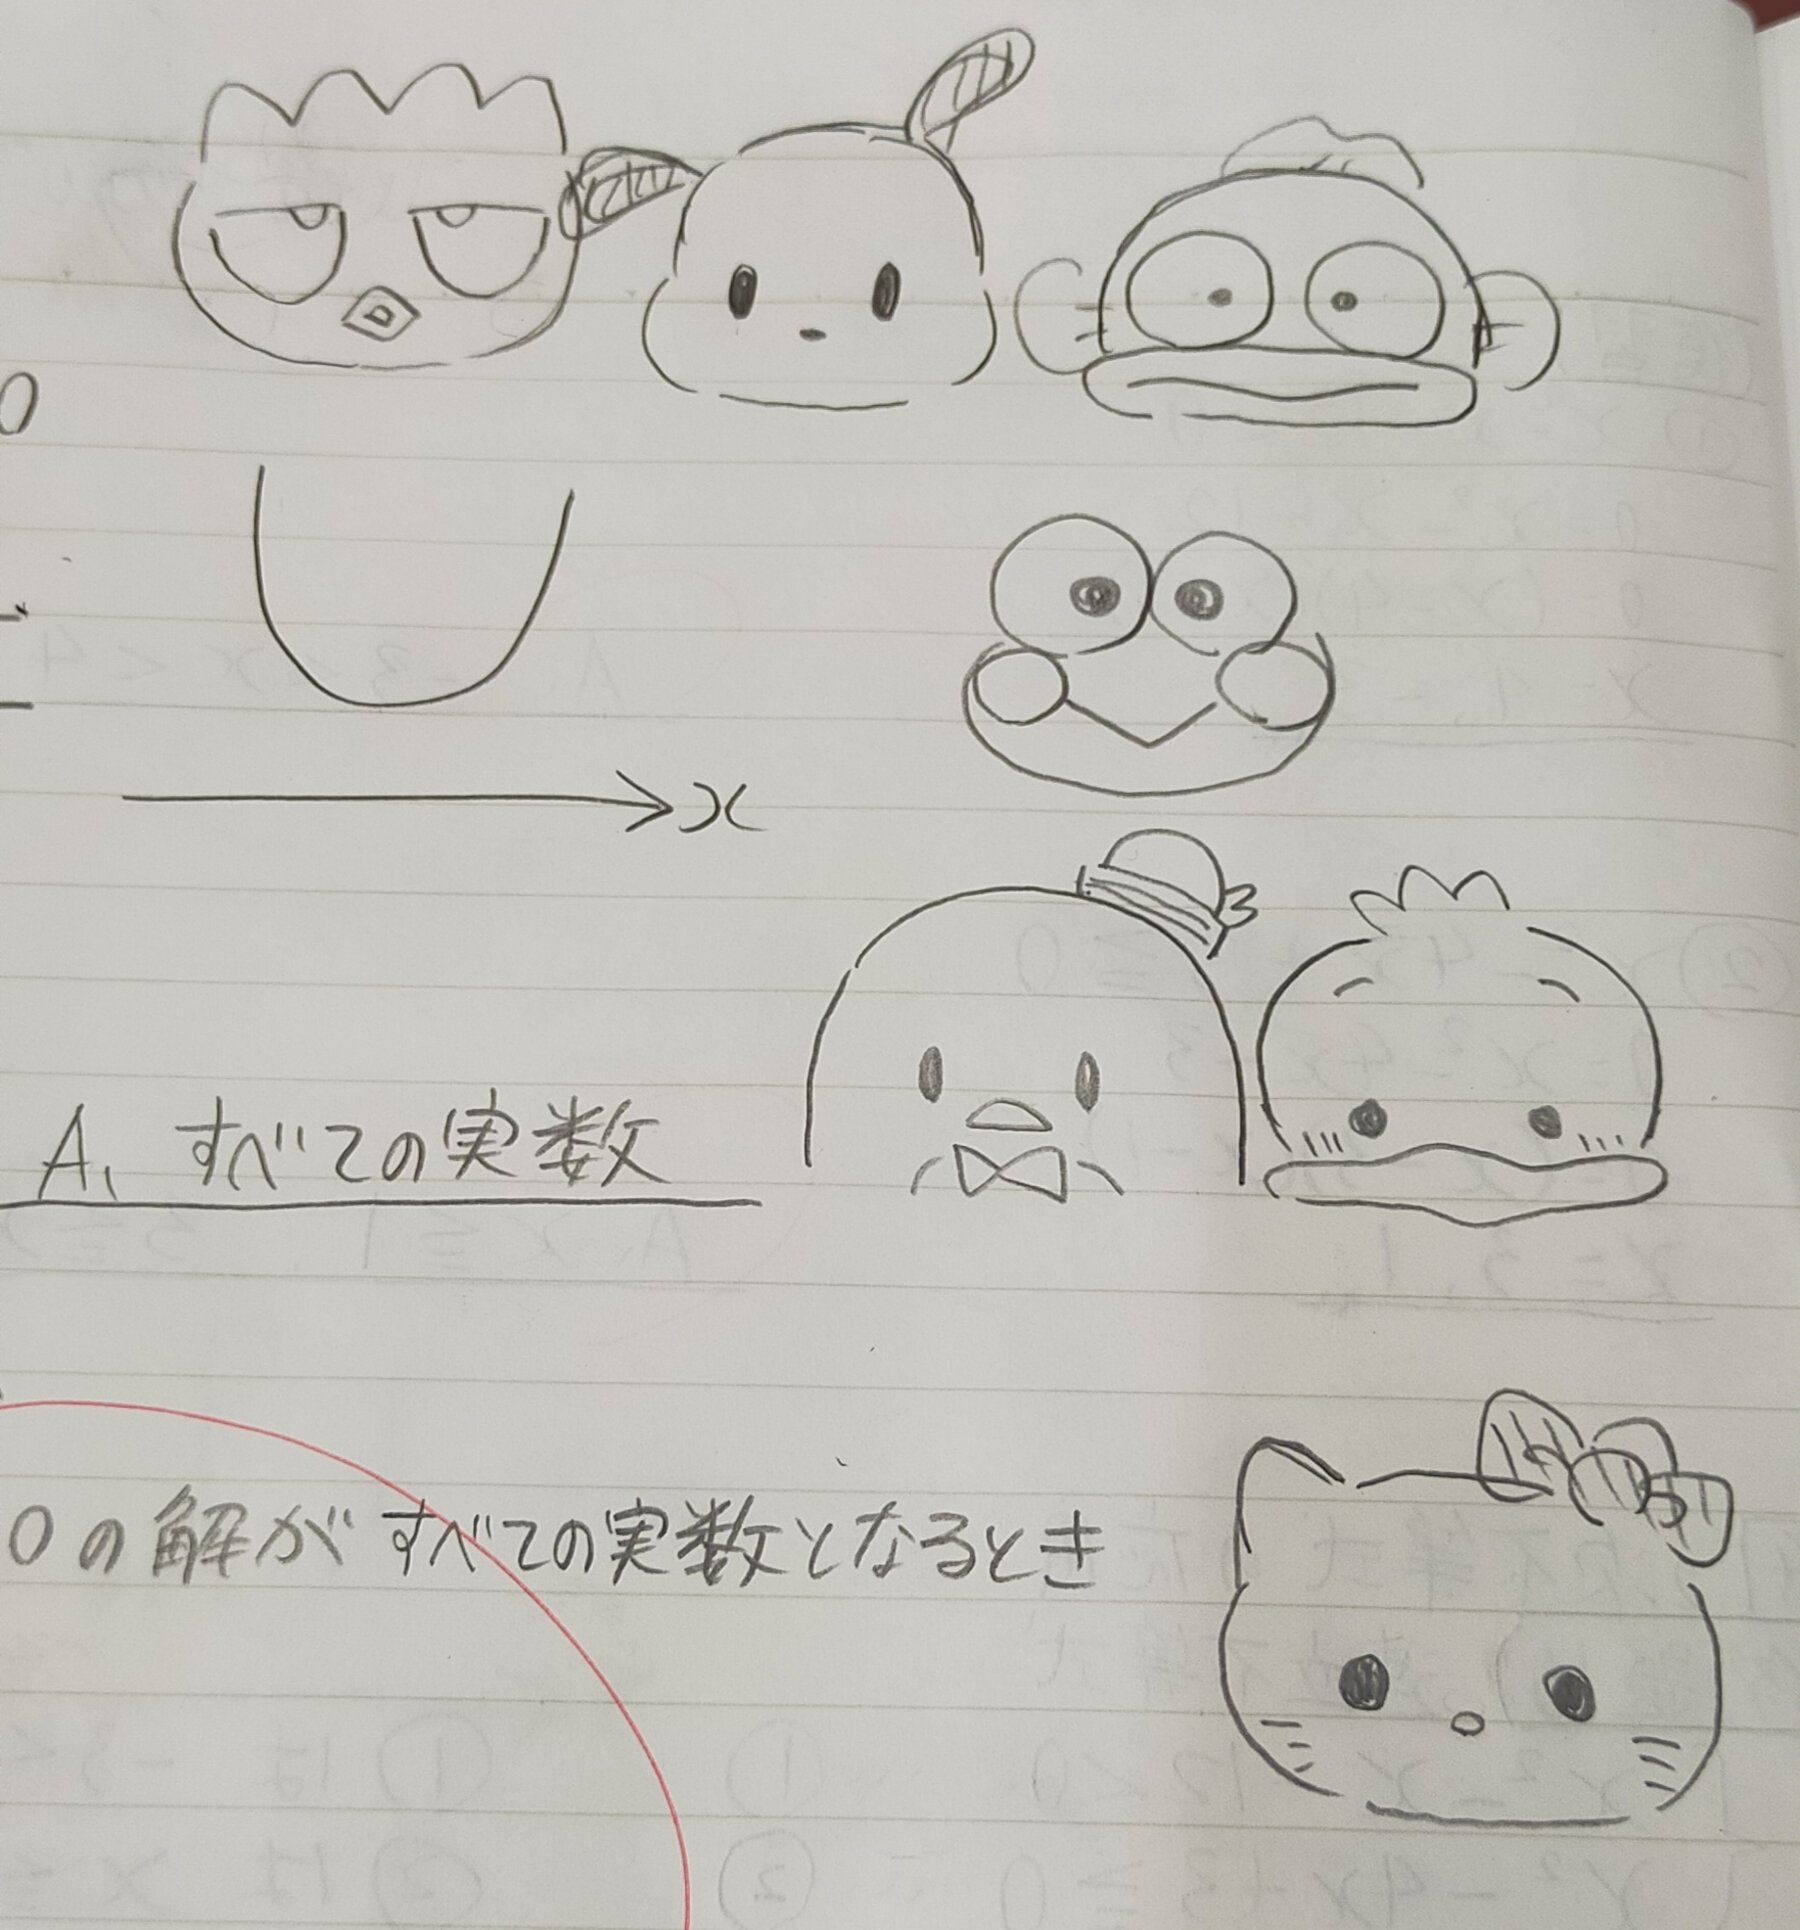 0
x
A, すべての実数
0の解がすべての実数となるとき